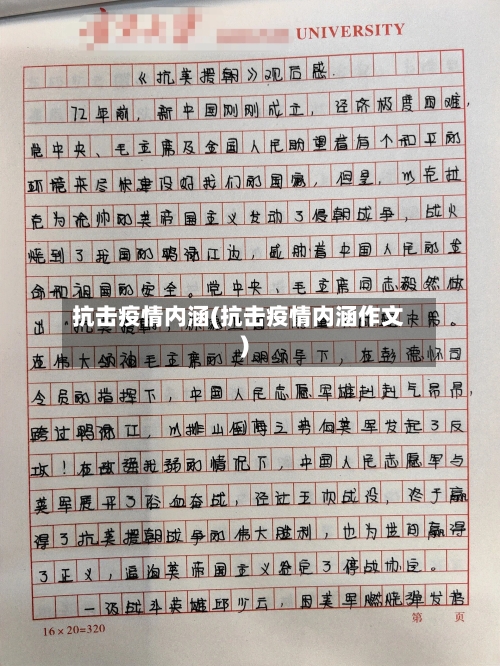 UNIVERSITY
《抗美援朝》观后感.
72年前，新中国刚刚成立，经济极度困难，
党中央、毛主席及全国人民盼望着有个和平的
环境来尽快建设好我们的国家，但是，以克拉
克为统帅的美帝国主义发动了侵朝战争，战火
烧到了我国的鸭绿江边，威胁着中国人民的生
命和祖国的安全。党中央、毛主席同志毅然做
出"抗美
抗击疫情内涵(抗击疫情内涵作文
)
在伟大领袖毛主席的英明领导下，在彭德怀司
令员的指挥下，中国人民志愿军雄赳赳气昂昂，
跨过鸭绿江，以排山倒海之势向美军发起了反
攻！在敌强我弱的情况下，中国人民志愿军与
美军展开了浴血奋战，经过五次战役，终于赢
得了抗美援朝战争的伟大胜利，也为世间赢得
了正义，逼迫美帝国主义签定了停战协定。
一级战斗英雄邱少云，因美军燃烧弹发着
16×20=320
第 页